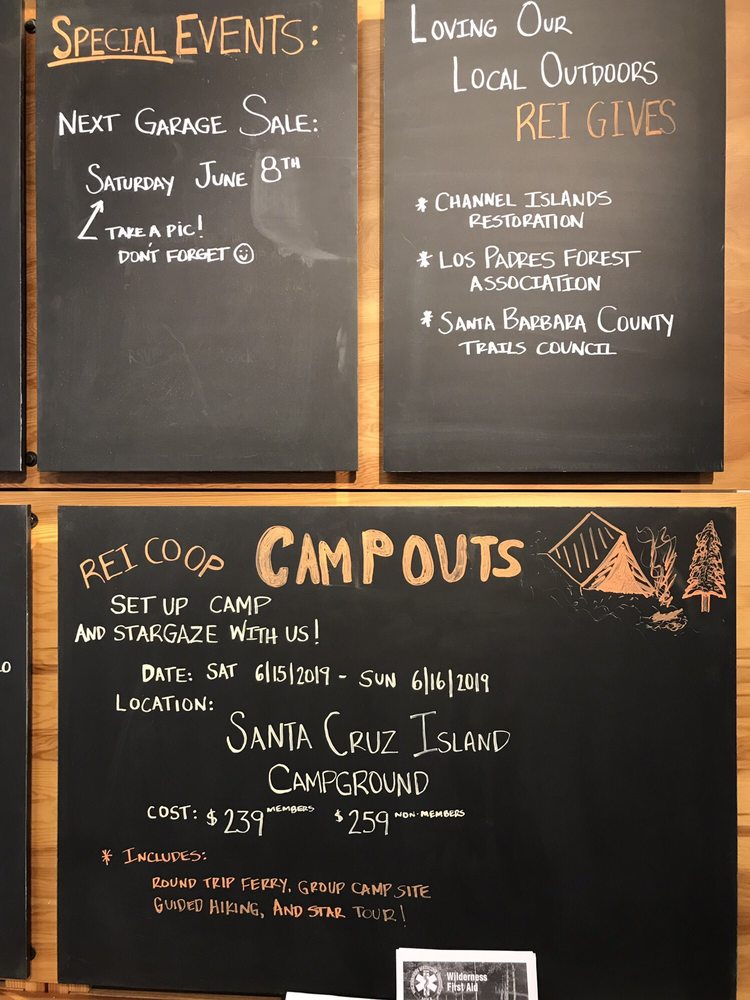 SPECIAL EVENTS:
NEXT GARAGE SALE:
SATURDAY JUNE 8TH
TAKE A PIC!
DON'T FORGET
LOVING OUR
LOCAL OUTDOORS
REI GIVES
* CHANNEL ISLANDS
RESTORATION
* LOS PADRES FOREST
ASSOCIATION
* SANTA BARBARA COUNTY
TRAILS COUNCIL
REI COOP CAMPOUTS
SET UP CAMP
AND STARGAZE WITH US!
DATE: SAT 6/15/2019 - SUN 6/16/2019
LOCATION:
SANTA CRUZ ISLAND
CAMPGROUND
COST: $239 MEMBERS $259 NON-MEMBERS
* INCLUDES:
ROUND TRIP FERRY, GROUP CAMP SITE
GUIDED HIKING, AND STAR TOUR!
Wilderness
First Aid